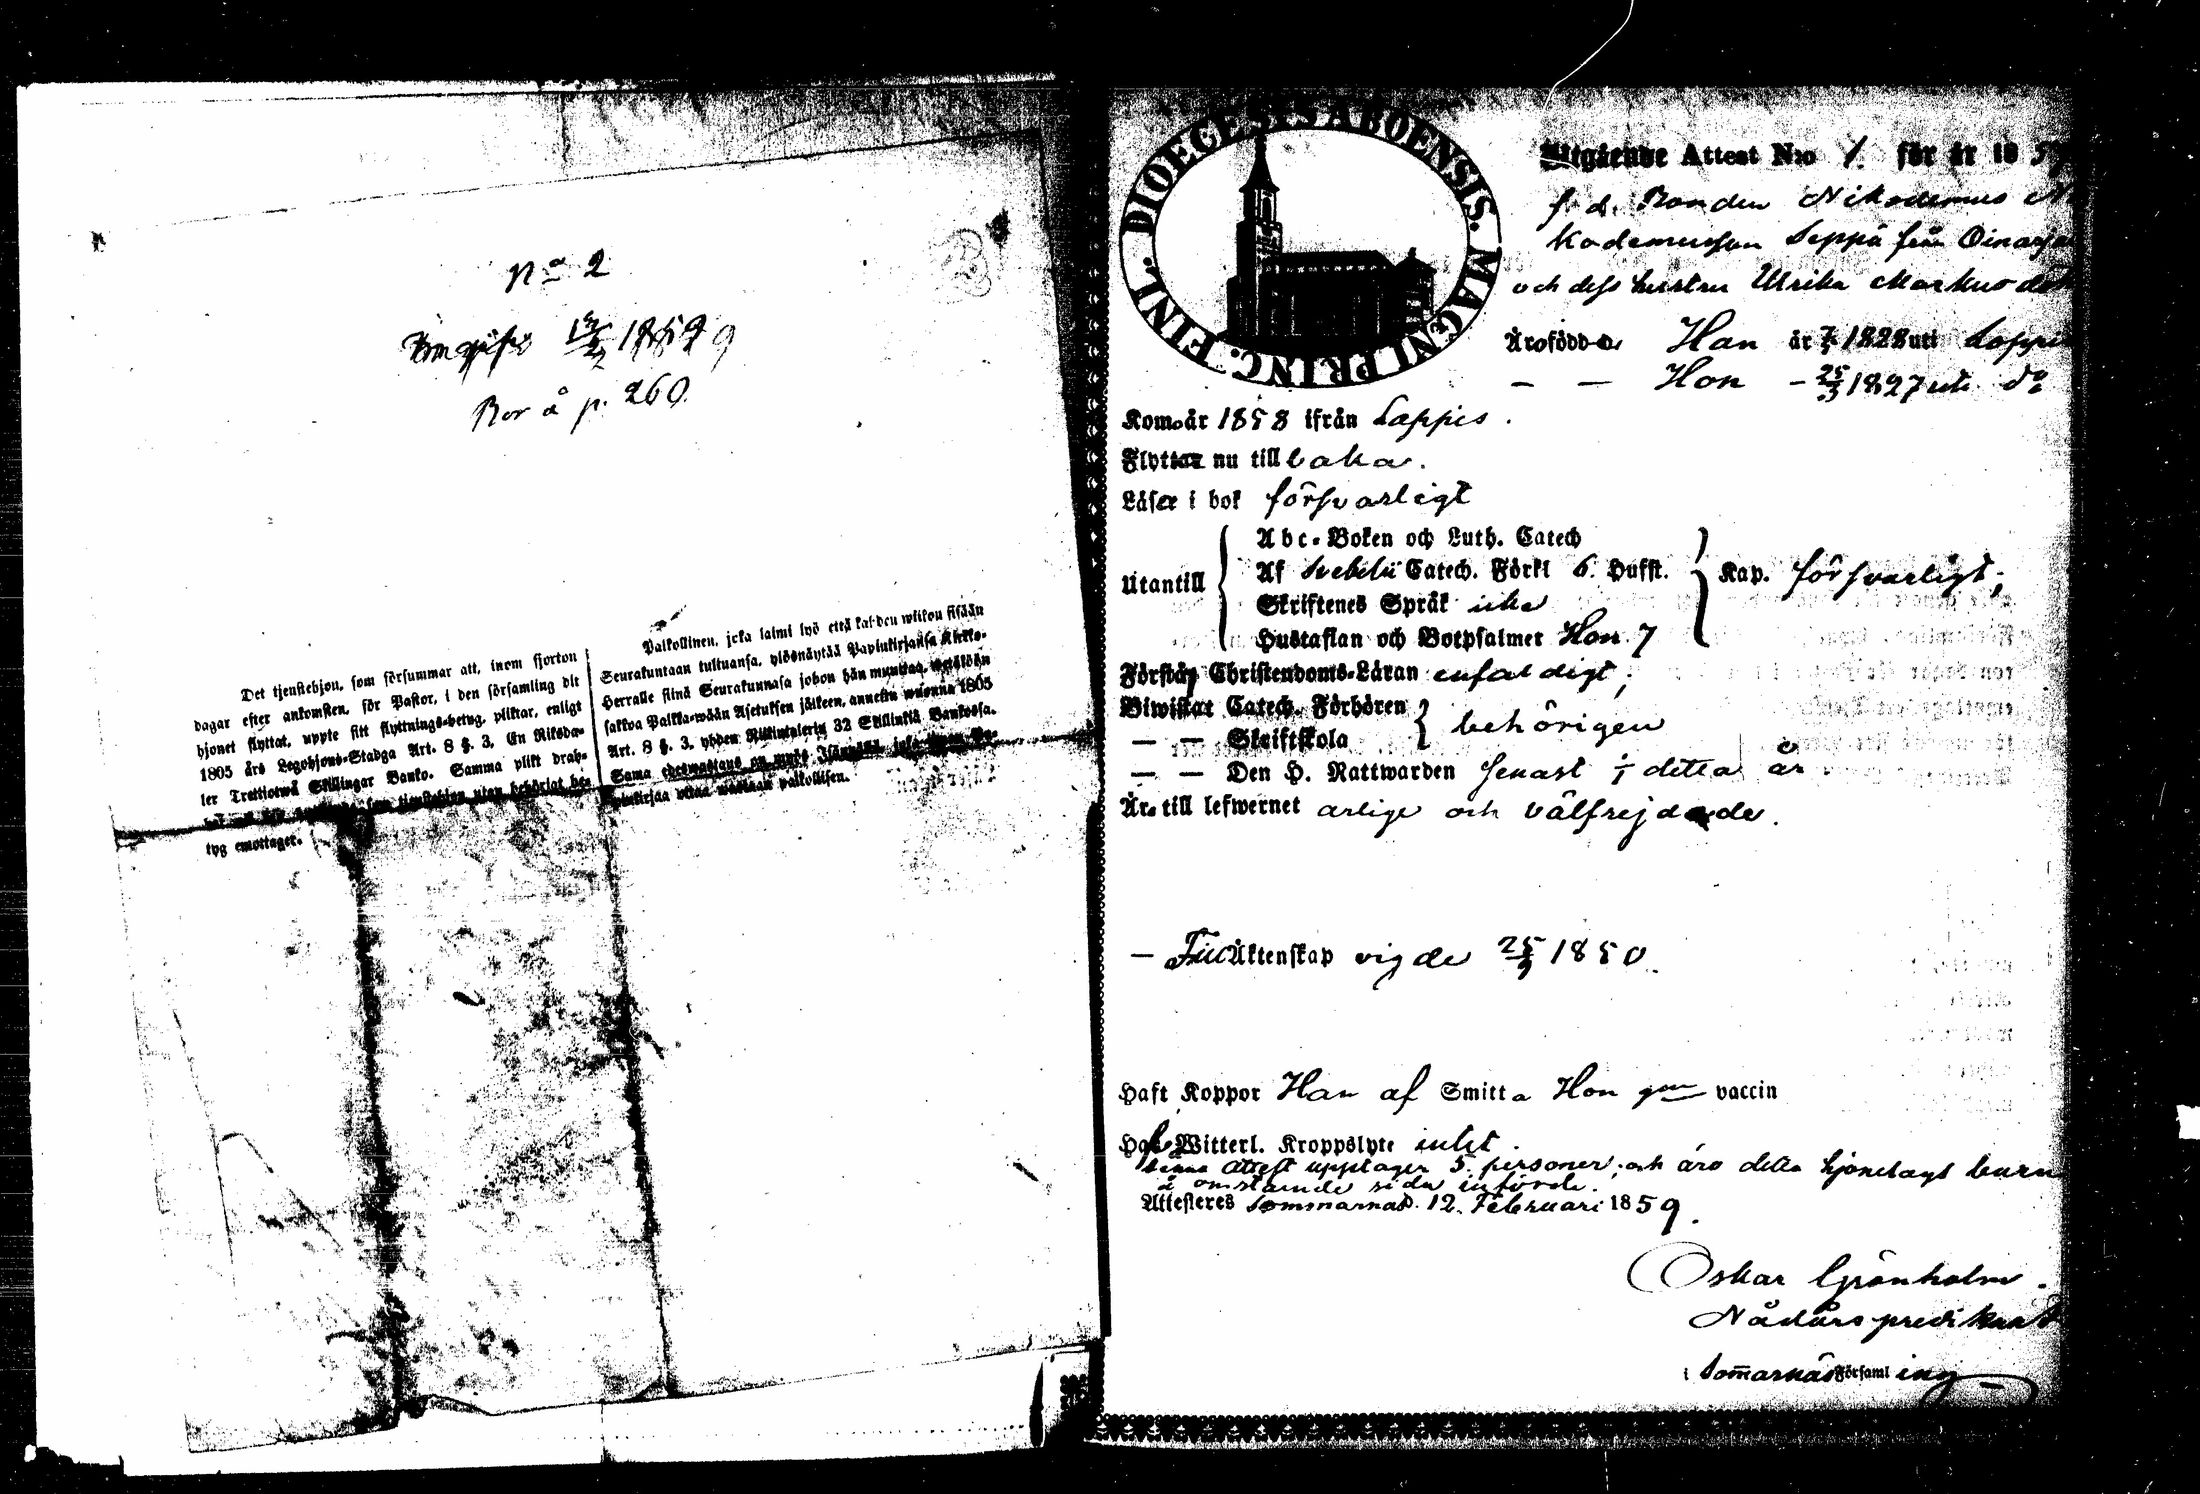 No 2
1859
Bor å p. 260.
Det tjenstehjon, som försummar att, inom fjorton
dagar efter ankomsten, för Pastor, i den församling dit
hjonet flyttat, uppte sitt flyttnings-betyg, pliktar, enligt
1805 års Legohjons-Stadga Art. 8 §. 3, En Riksda-
ler Trettiotwå Skillingar Banko. Samma plikt drab-
som tjenstehjon utan behörigt be-
tyg emottager.
Palkollinen, joka laimi lyö että kahden wiikon sisään
Seurakuntaan tultuansa, ylösnäytää Papinkirjansa Kirkko-
Herralle siinä Seurakunnasa johon hän muuttaa, wetäköön
sakkoa Palkka-wään Asetuksen jälkeen, annettu wuonna 1805
Art. 8 §. 3, yhden Riikintalerin 32 Skillinkiä Bankossa.
Sama edeswastaus on myös Isännällä, joka ilman Pa-
pinkirjaa ottaa wastaan palkollisen.
DIOECESIS ABOENSIS. MAGNI PRINC. FINL.
Utgående Attest N:o 1. för år 1859
f. d. Bonden Nikodemus Ni
kodemusson Seppä från Oinasja
och dess hustru Ulrika Markusdot
Äro född-e Han år 1828 uti Loppis
— — Hon – 25/3 1827 uti do
Kom. år 1858 ifrån Loppis.
Flyttar nu tillbaka.
Läser i bok försvarligt
Utantill
Abc-Boken och Luth. Catech
Af Svebelii Catech. Förkl 6. Hufst.
Skriftenes Språk icke
Hustaflan och Botpsalmer Hon 7
Kap. försvarligt;
Förstår Christendoms-Läran enfaldigt;
Biwistat Catech. Förhören
— — Skriftskola
behörigen
— — Den H. Nattwarden senast 1/1 detta år
Är. till lefwernet ärlige och välfrejdade.
— Till Äktenskap vigde 25/9 1850.
Haft Koppor Han af Smitta Hon gm vaccin
Witterl. Kroppslyte intet.
Denna Attest upptager 5. personer; och äro detta hjonelags barn
å omstående sida införde.
Attesteres Sommarnäs d. 12. Februari 1859.
Oskar Grönholm.
Nådårspredikant
i Som̄arnäs Församling